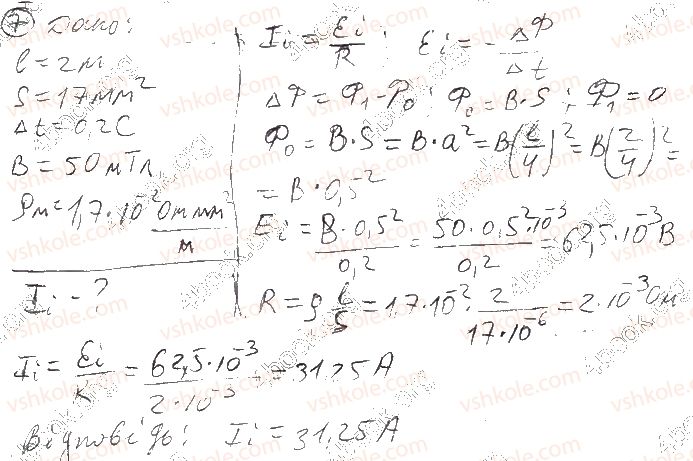 7 Дано:
l = 2 м
S = 17 мм²
Δt = 0,2 С
B = 50 мТл
ρм = 1,7·10⁻² Ом мм²/м
Ii - ?
Ii = Ei/R ; Ei = - ΔΦ/Δt
ΔΦ = Φ₁ - Φ₀ ; Φ₀ = B·S ; Φ₁ = 0
Φ₀ = B·S = B·a² = B(l/4)² = B(2/4)² =
= B·0,5²
Ei = B·0,5²/0,2 = 50·0,5²·10⁻³/0,2 = 62,5·10⁻³ В
R = ρ l/S = 1,7·10⁻² · 2/17·10⁻⁶ = 2·10⁻³ Ом
Ii = Ei/R = 62,5·10⁻³/2·10⁻³ = 31,25 А
Відповідь: Ii = 31,25 А